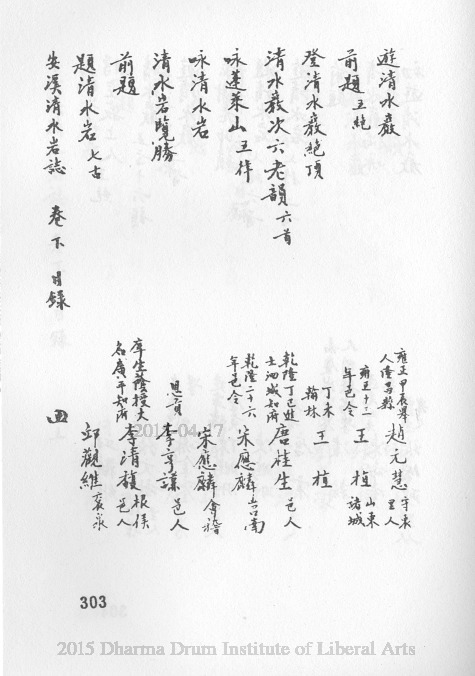 遊清水巖 雍正甲辰舉人 趙元慧 字東 里人
前題 雍正十二年邑令 王植 山東諸城
登清水巖絕頂 丁未翰林 王植
清水巖次六老韻 六首 乾隆丁巳進士泗城知府 唐桂生 邑人
咏蓬萊山 乾隆二十六年邑令 宋應麟
咏清水岩 宋應麟 會稽
清水岩覽勝 恩貢 李亨謙 邑人
前題 庠生蔭授大名廣平知府 李清植 根侯 邑人
題清水岩 七古 邱觀維
安溪清水岩誌 卷下 目錄 四
303
2015 Dharma Drum Institute of Liberal Arts